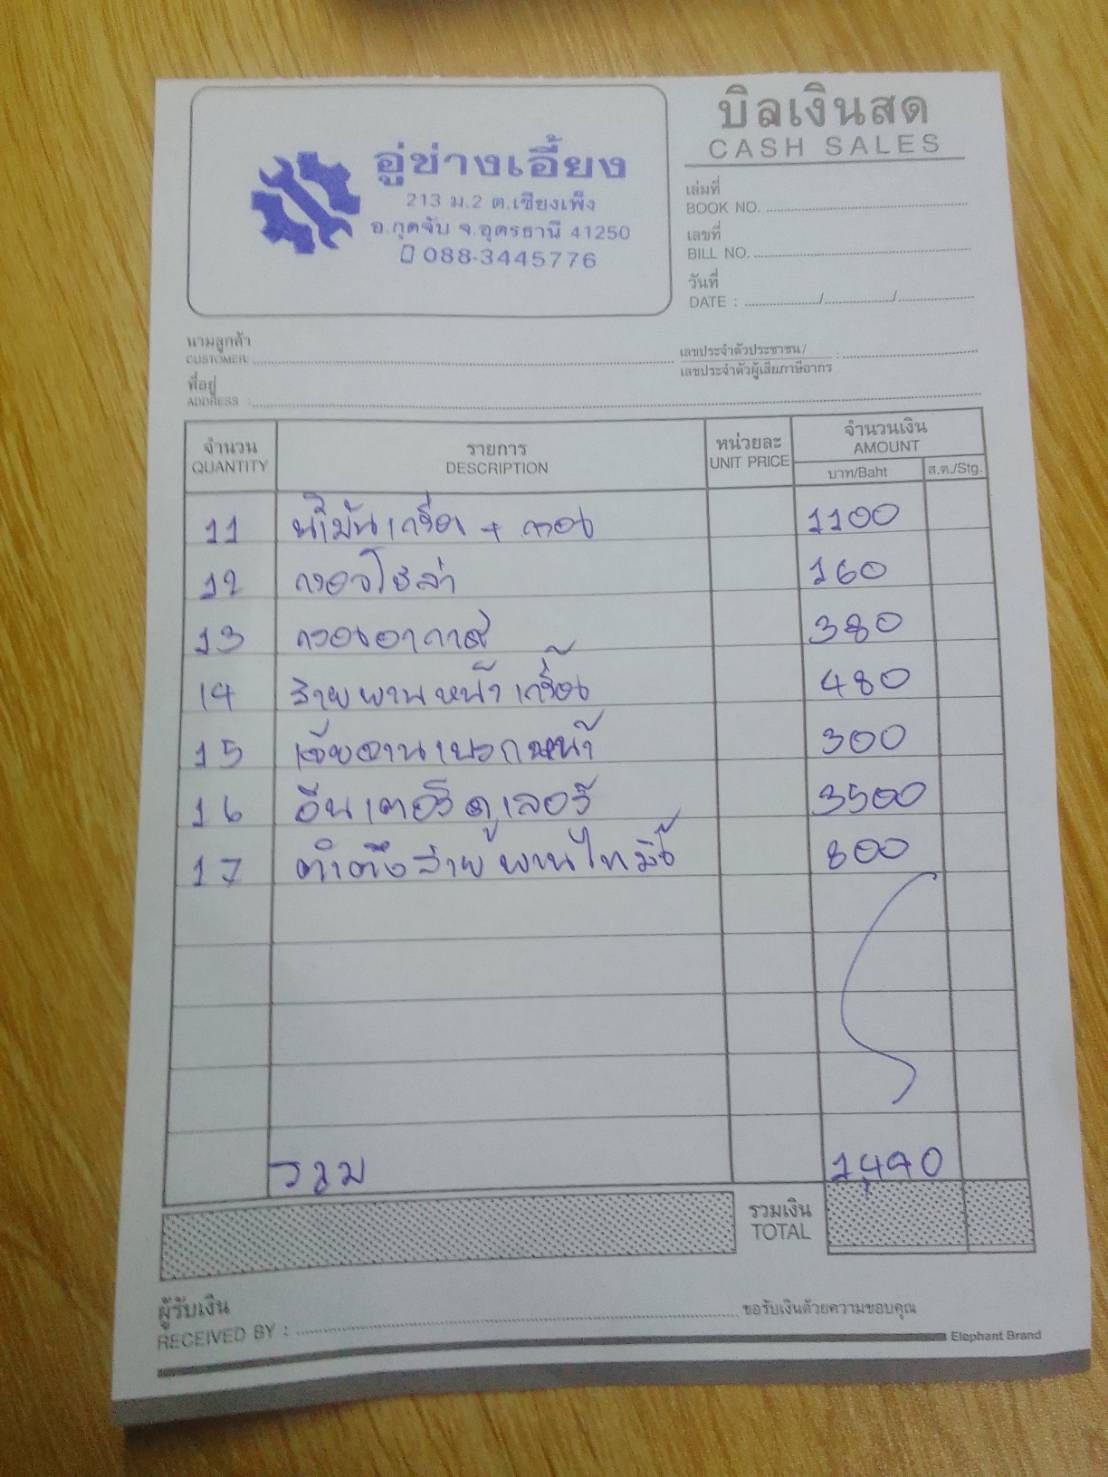 บิลเงินสด
CASH SALES
อู่ช่างเอี้ยง
213 ม.2 ต.เชียงเพ็ง
อ.กุดจับ จ.อุดรธานี 41250
088-3445776
เล่มที่
BOOK NO.
เลขที่
BILL NO.
วันที่
DATE : / /
นามลูกค้า
CUSTOMER
เลขประจำตัวประชาชน/
เลขประจำตัวผู้เสียภาษีอากร :
ที่อยู่
ADDRESS :
จำนวน รายการ หน่วยละ จำนวนเงิน
QUANTITY DESCRIPTION UNIT PRICE AMOUNT
บาท/Baht ส.ต./Stg.
11 น้ำมันเครื่อง + กรอง 1100
12 กรองโซล่า 160
13 กรองอากาศ 380
14 สายพานหน้าเครื่อง 480
15 เจียจานเบรกหน้า 300
16 อินเตอร์คูเลอร์ 3500
17 ตัวตั้งสายพานไทม์มิ่ง 800
รวม
รวมเงิน
TOTAL
ผู้รับเงิน
RECEIVED BY :
ขอรับเงินด้วยความขอบคุณ
Elephant Brand